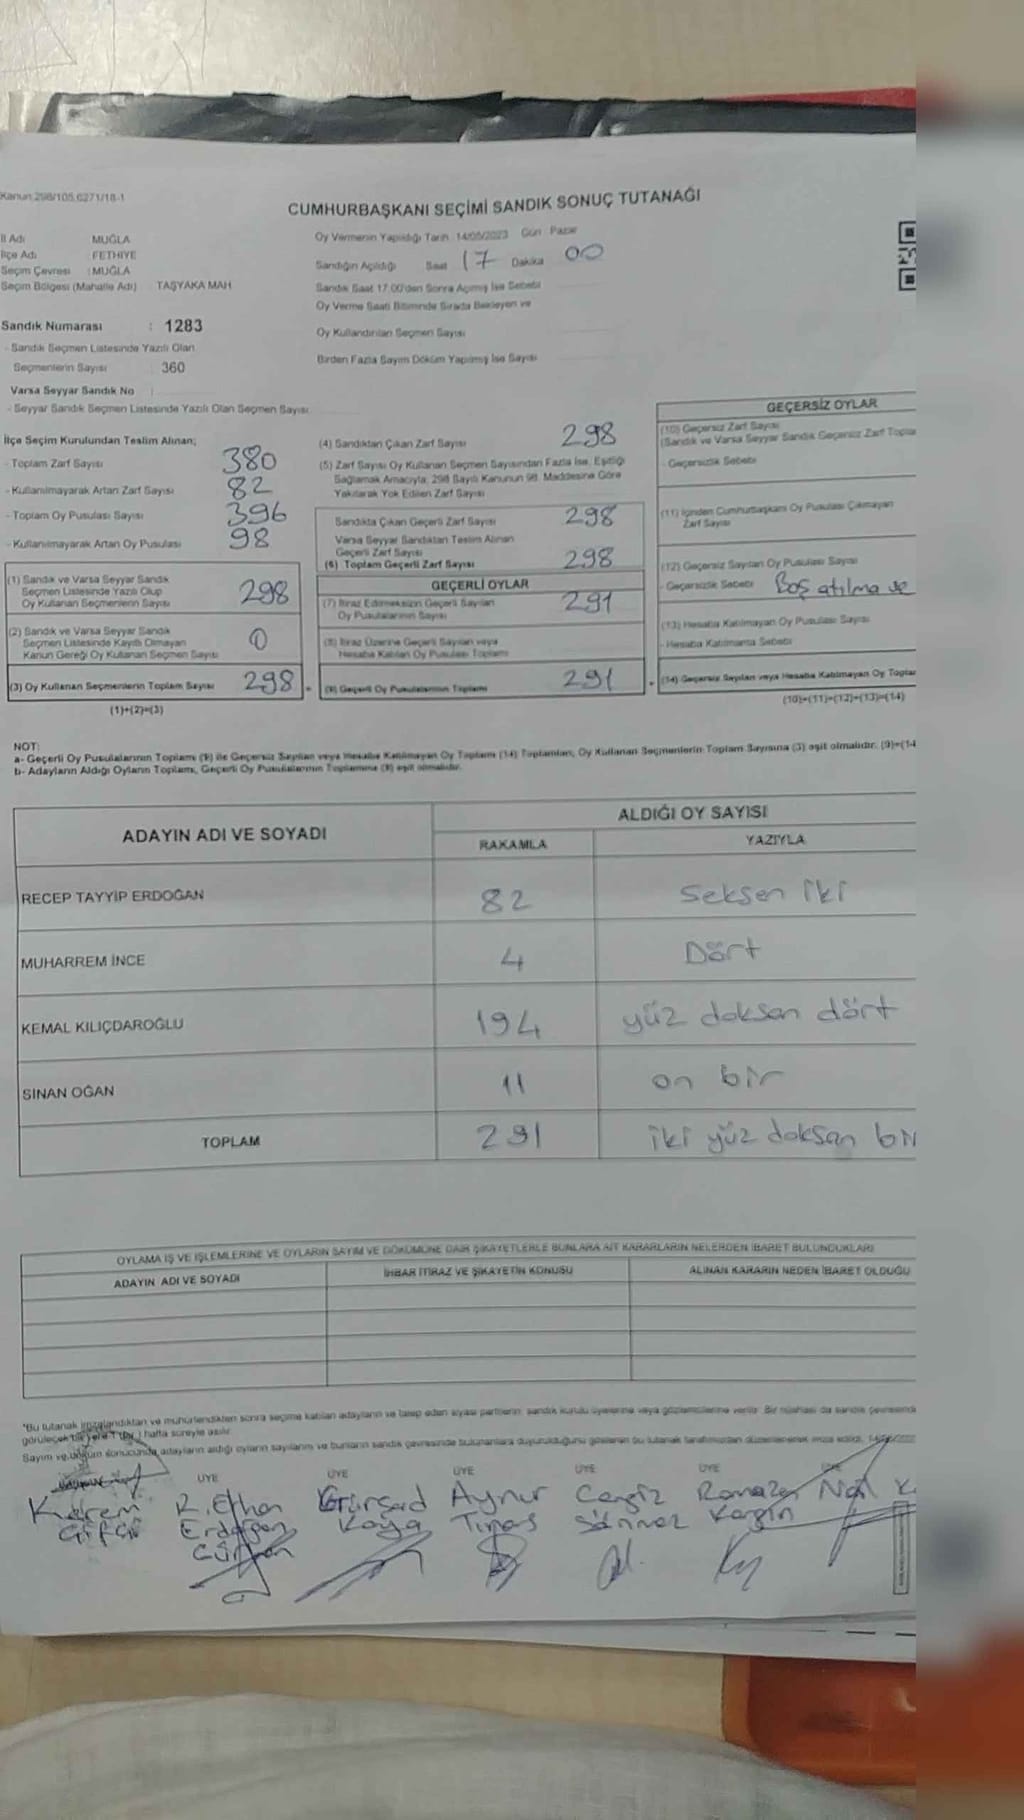 Kanun:298/105,6271/18-1
CUMHURBAŞKANI SEÇİMİ SANDIK SONUÇ TUTANAĞI
İl Adı MUĞLA
İlçe Adı FETHİYE
Seçim Çevresi : MUĞLA
Seçim Bölgesi (Mahalle Adı) TAŞYAKA MAH.
Oy Vermenin Yapıldığı Tarih 14/05/2023 Gün : Pazar
Sandığın Açıldığı Saat 17 Dakika 00
Sandık Saat 17:00'den Sonra Açımış İse Sebebi
Oy Verme Saati Bitiminde Sırada Bekleyen ve
Oy Kullandırılan Seçmen Sayısı
Birden Fazla Sayım Döküm Yapılmış İse Sayısı
Sandık Numarası : 1283
- Sandık Seçmen Listesinde Yazılı Olan
Seçmenlerin Sayısı : 360
Varsa Seyyar Sandık No :
- Seyyar Sandık Seçmen Listesinde Yazılı Olan Seçmen Sayısı
İlçe Seçim Kurulundan Teslim Alınan;
- Toplam Zarf Sayısı 380
- Kullanılmayarak Artan Zarf Sayısı 82
- Toplam Oy Pusulası Sayısı 396
- Kullanılmayarak Artan Oy Pusulası 98
(1) Sandık ve Varsa Seyyar Sandık
Seçmen Listesinde Yazılı Olup
Oy Kullanan Seçmenlerin Sayısı 298
(2) Sandık ve Varsa Seyyar Sandık
Seçmen Listesinde Kayıtlı Olmayan
Kanun Gereği Oy Kullanan Seçmen Sayısı 0
(3) Oy Kullanan Seçmenlerin Toplam Sayısı 298 =
(1)+(2)=(3)
(4) Sandıktan Çıkan Zarf Sayısı 298
(5) Zarf Sayısı Oy Kullanan Seçmen Sayısından Fazla İse, Eşitliği
Sağlamak Amacıyla; 298 Sayılı Kanunun 98. Maddesine Göre
Yakılarak Yok Edilen Zarf Sayısı
Sandıkta Çıkan Geçerli Zarf Sayısı 298
Varsa Seyyar Sandıktan Teslim Alınan
Geçerli Zarf Sayısı
(6) Toplam Geçerli Zarf Sayısı 298
GEÇERLİ OYLAR
(7) İtiraz Edilmeksizin Geçerli Sayılan
Oy Pusulalarının Sayısı 291
(8) İtiraz Üzerine Geçerli Sayılan veya
Hesaba Katılan Oy Pusulası Toplamı
(9) Geçerli Oy Pusulalarının Toplamı 291 +
GEÇERSİZ OYLAR
(10) Geçersiz Zarf Sayısı
(Sandık ve Varsa Seyyar Sandık Geçersiz Zarf Topla
- Geçersizlik Sebebi
(11) İçinden Cumhurbaşkanı Oy Pusulası Çıkmayan
Zarf Sayısı
(12) Geçersiz Sayılan Oy Pusulası Sayısı
- Geçersizlik Sebebi Boş atılma ve
(13) Hesaba Katılmayan Oy Pusulası Sayısı
- Hesaba Katılmama Sebebi
(14) Geçersiz Sayılan veya Hesaba Katılmayan Oy Toplar
(10)+(11)+(12)+(13)=(14)
NOT:
a- Geçerli Oy Pusulalarının Toplamı (9) ile Geçersiz Sayılan veya Hesaba Katılmayan Oy Toplamı (14) Toplamları, Oy Kullanan Seçmenlerin Toplam Sayısına (3) eşit olmalıdır. (9)+(14
b- Adayların Aldığı Oyların Toplamı, Geçerli Oy Pusulalarının Toplamına (9) eşit olmalıdır.
ADAYIN ADI VE SOYADI ALDIĞI OY SAYISI
RAKAMLA YAZIYLA
RECEP TAYYİP ERDOĞAN 82 Seksen iki
MUHARREM İNCE 4 Dört
KEMAL KILIÇDAROĞLU 194 yüz doksan dört
SİNAN OĞAN 11 on bir
TOPLAM 291 iki yüz doksan bir
OYLAMA İŞ VE İŞLEMLERİNE VE OYLARIN SAYIM VE DÖKÜMÜNE DAİR ŞİKAYETLERLE BUNLARA AİT KARARLARIN NELERDEN İBARET BULUNDUKLARI
ADAYIN ADI VE SOYADI İHBAR İTİRAZ VE ŞİKAYETİN KONUSU ALINAN KARARIN NEDEN İBARET OLDUĞU
*Bu tutanak imzalandıktan ve mühürlendikten sonra seçime katılan adayların ve talep eden siyasi partilerin sandık kurulu üyelerine veya gözlemcilerine verilir. Bir nüshası da sandık çevresinde
görülecek bir yere 1 (bir) hafta süreyle asılır.
Sayım ve döküm sonucunda adayların aldığı oyların sayılarını ve bunların sandık çevresinde bulunanlara duyurulduğunu gösteren bu tutanak tarafımızdan düzenlenerek imza edildi. 14/05/202
ÜYE ÜYE ÜYE ÜYE ÜYE ÜYE
Kerem R. Ethem Gürşad Aynur Cengiz Ramazan
Çifçi Erdoğan Kaya Tınas Sönmez